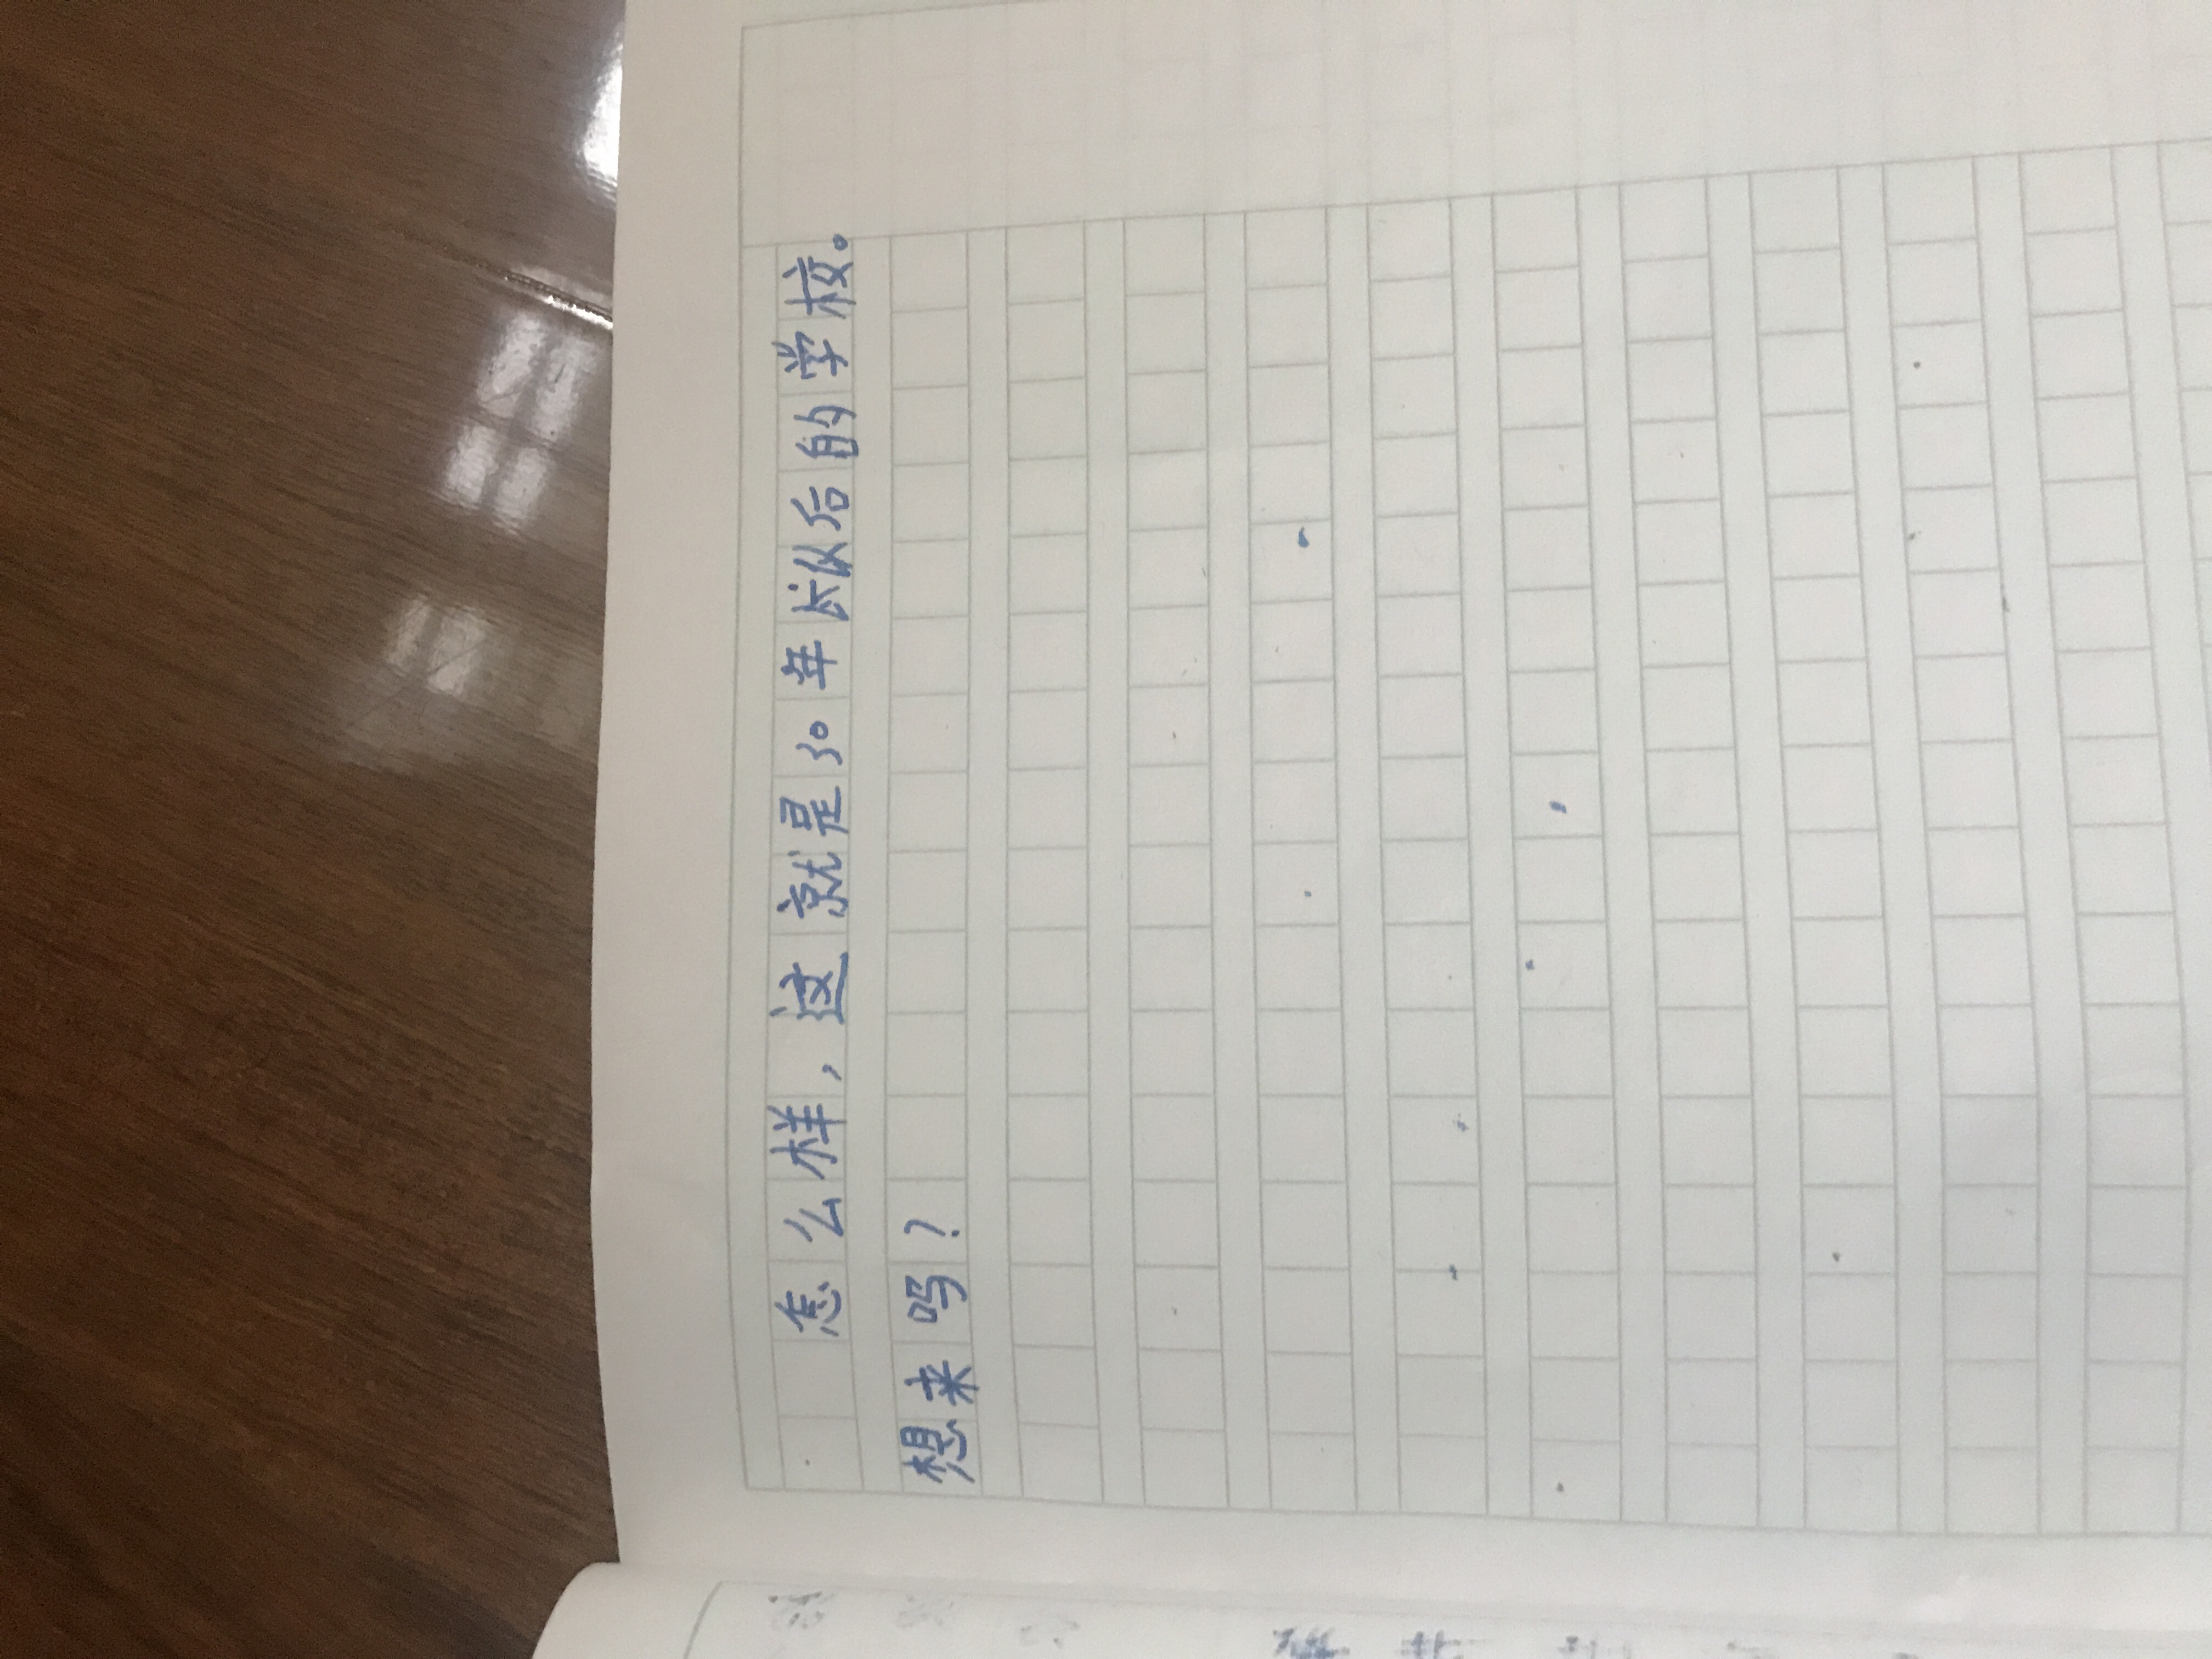 怎么样，这就是30年以后的学校。
想来吗？